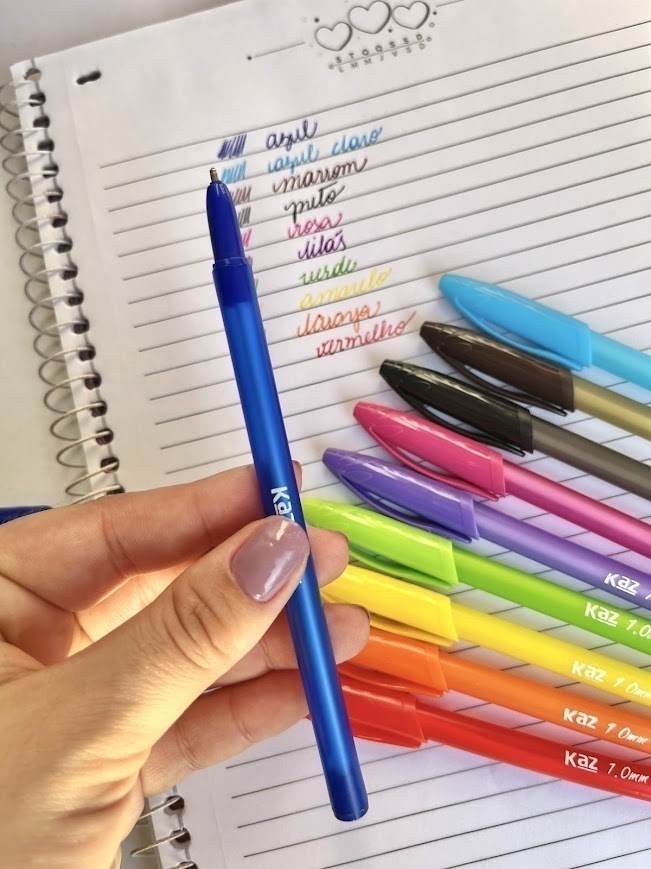 azul
azul claro
marrom
preto
rosa
lilás
verde
amarelo
laranja
vermelho
Kaz
Kaz
Kaz 1.0
Kaz 1.0mm
Kaz 1.0mm
Kaz 1.0mm